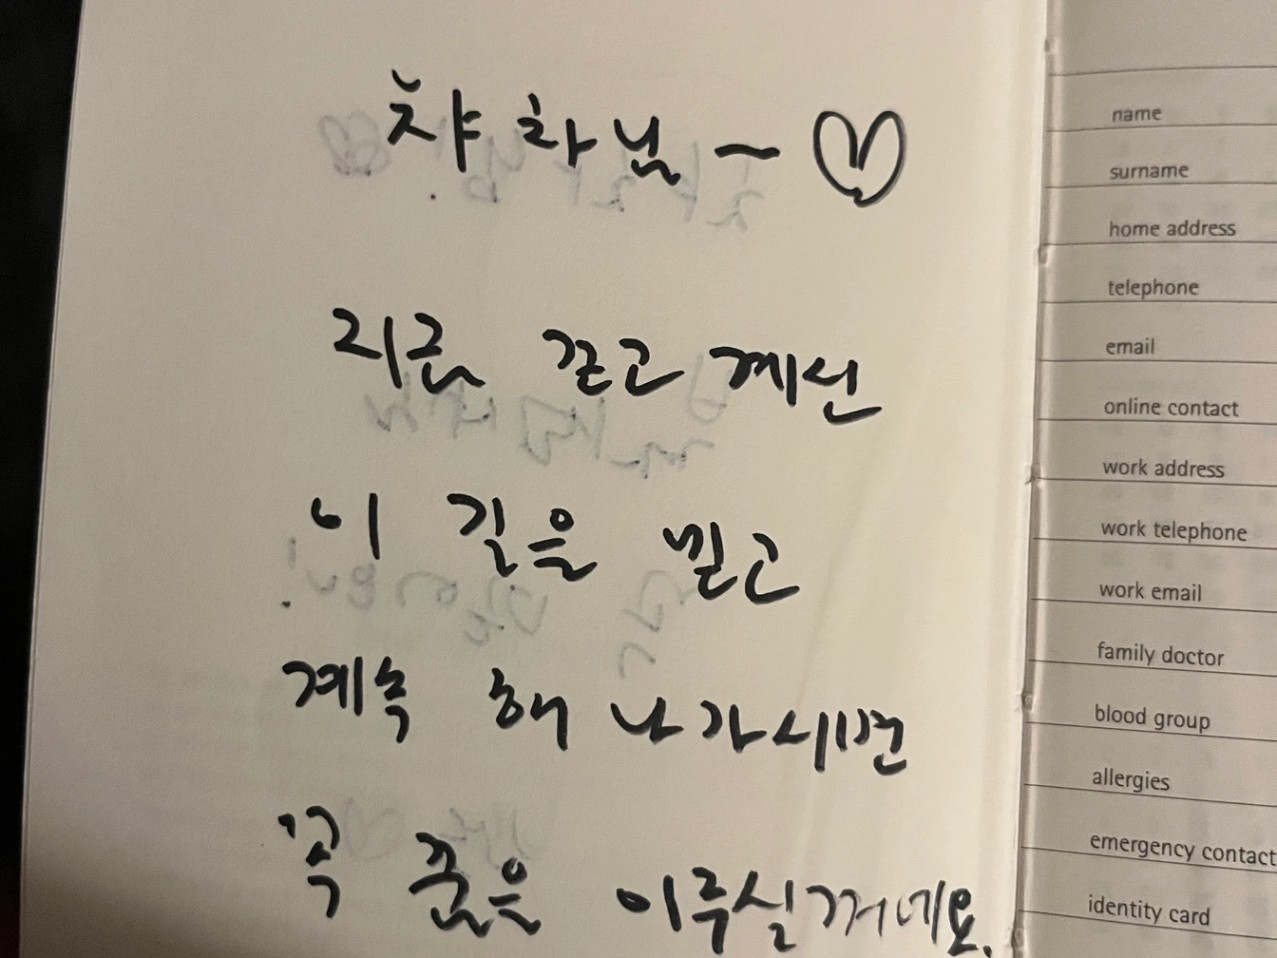 챠챠님~♡
지금 걷고 계신
이 길을 믿고
계속 해 나가시면
꼭 꿈은 이루실꺼예요.
name
surname
home address
telephone
email
online contact
work address
work telephone
work email
family doctor
blood group
allergies
emergency contact
identity card